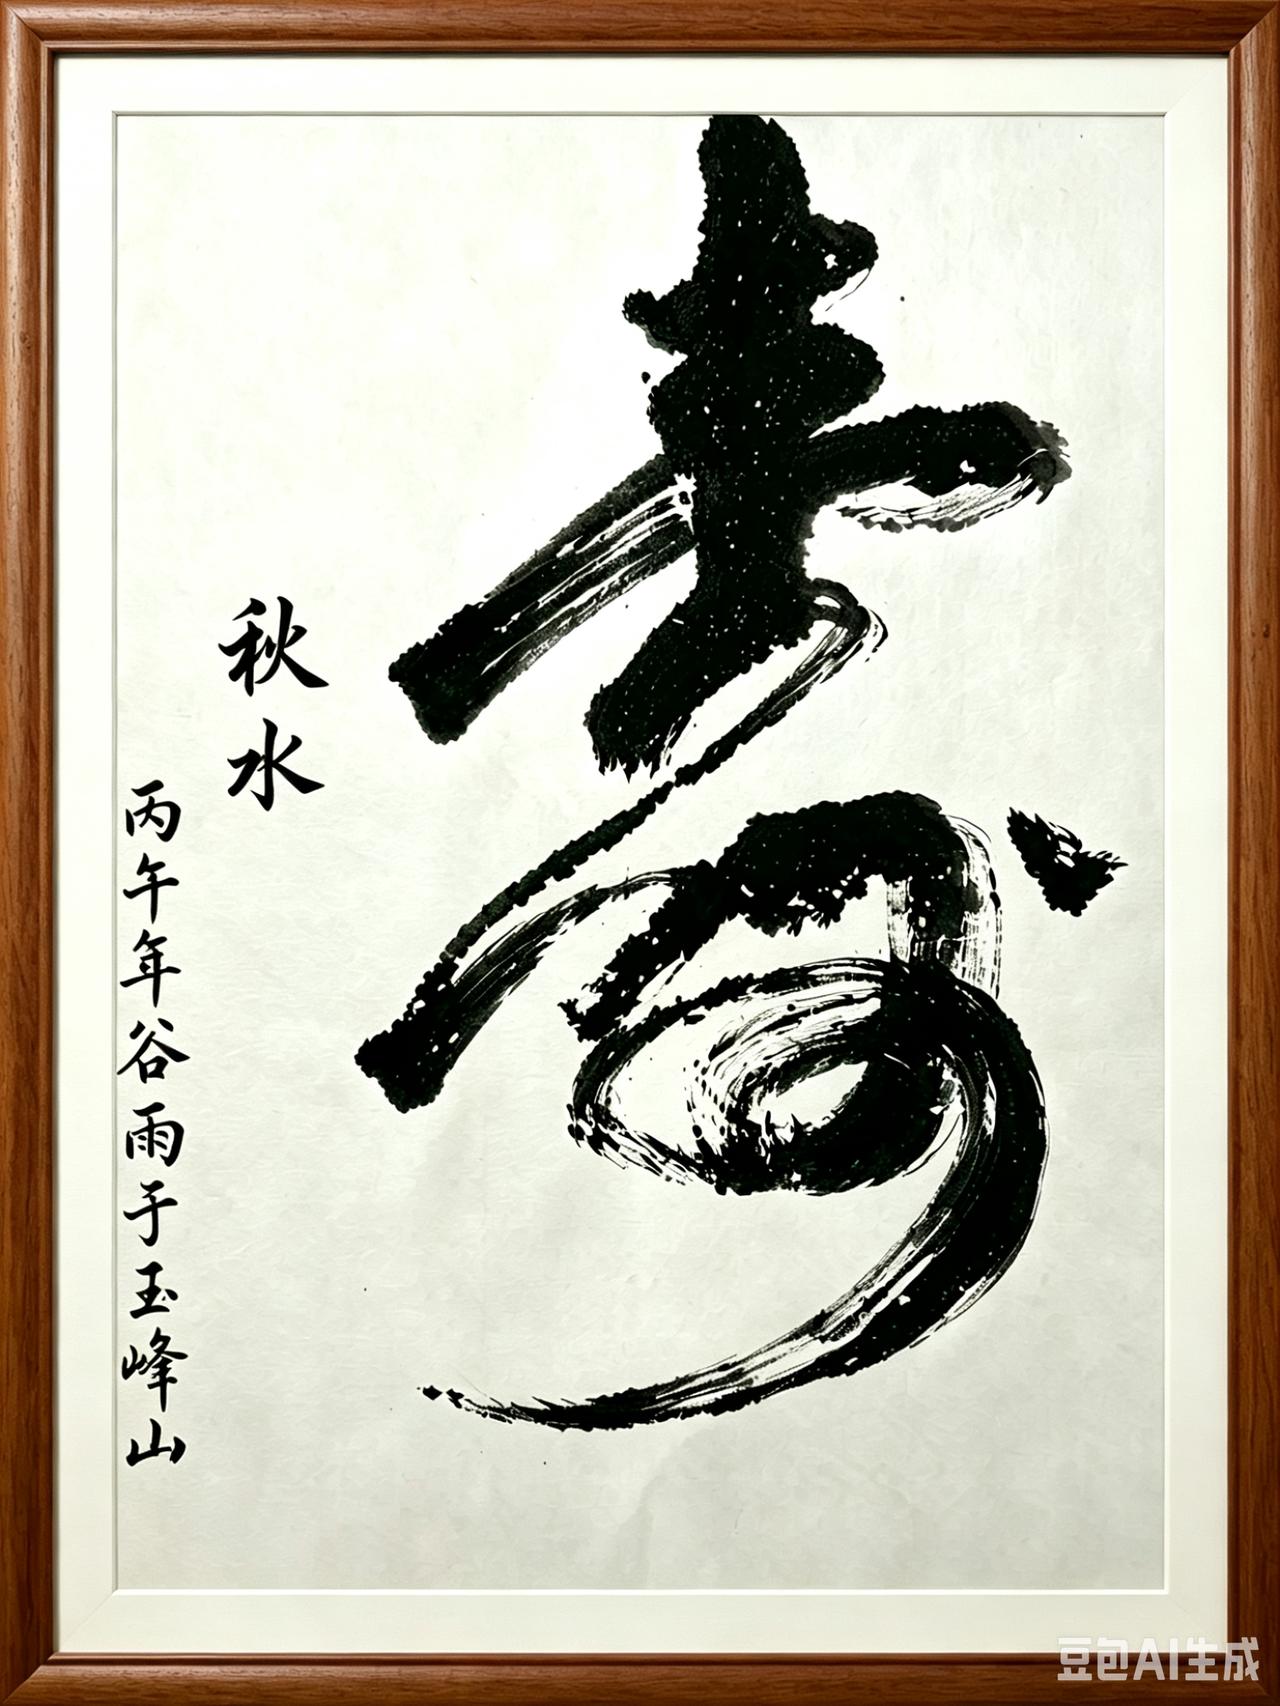 秋水
丙午年谷雨于玉峰山
豆包AI生成